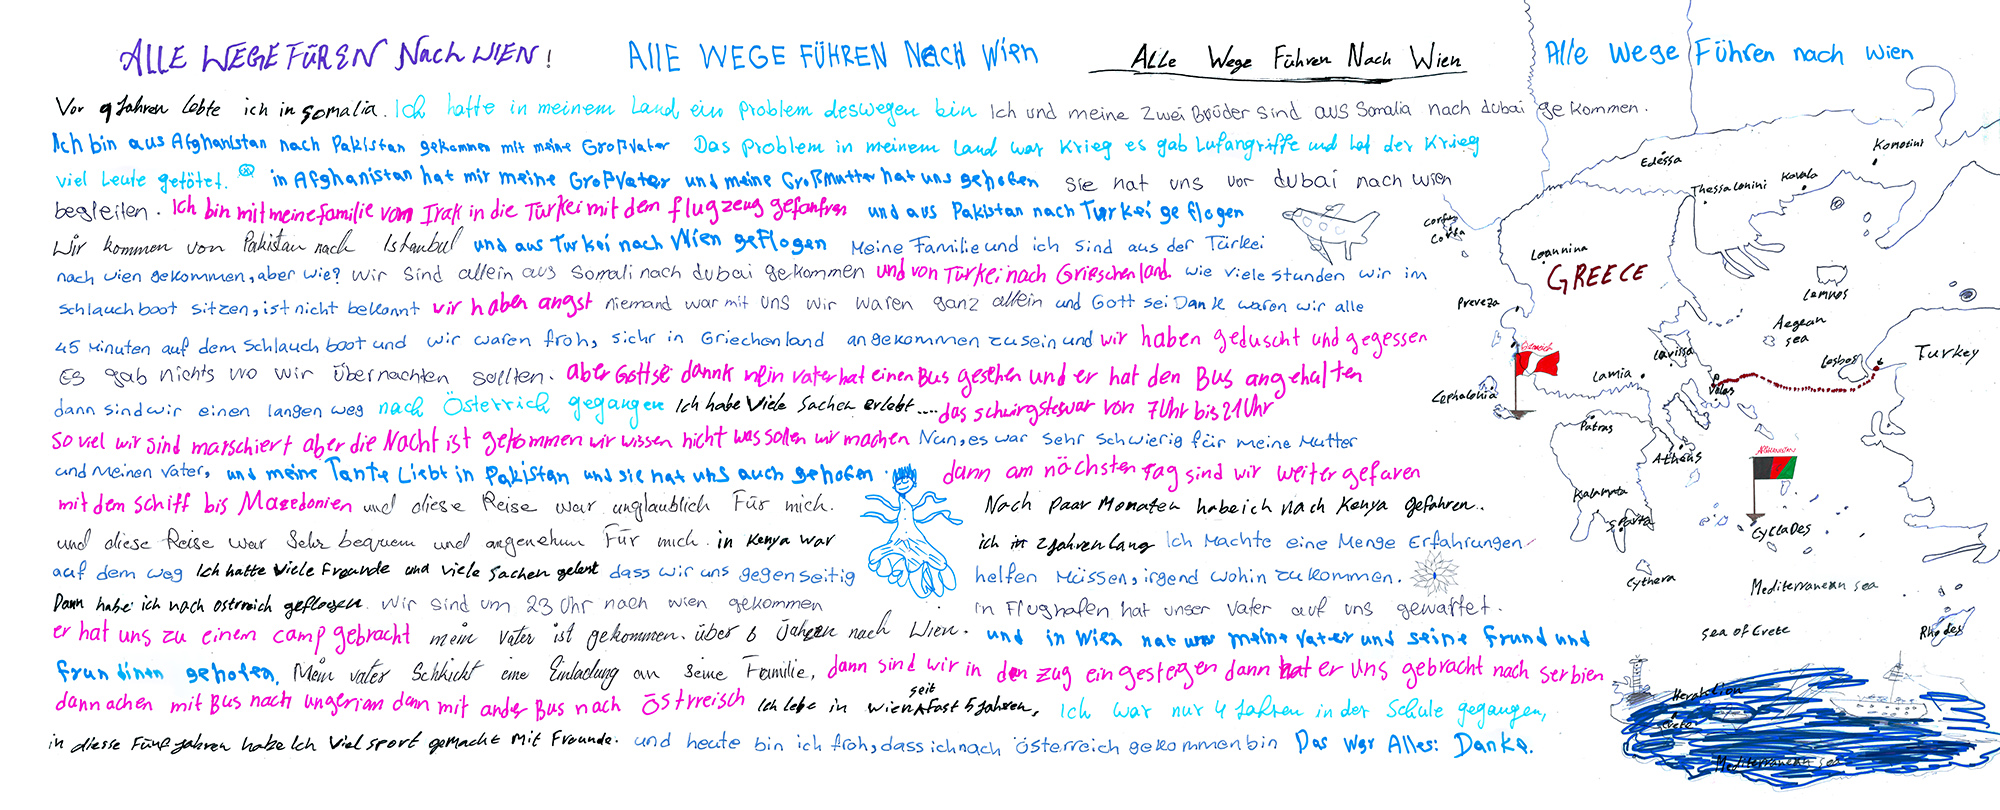 ALLE WEGE FÜREN Nach WIEN! AllE WEGE FÜHREN NACH Wien Alle Wege Führen Nach Wien Alle Wege Führen nach Wien
Vor 9 Jahren lebte ich in Somalia. Ich hatte in meinem Land ein Problem deswegen bin Ich und meine zwei Brüder sind aus Somalia nach dubai ge kommen.
Ich bin aus Afghanistan nach Pakistan gekommen mit meine Großvater Das Problem in meinem Land war Krieg es gab Lufangriffe und hat der Krieg
viel Leute getötet. in Afghanistan hat mir meine Großvater und meine Großmutter hat uns geholfen Sie hat uns vor dubai nach wien
begleiten. Ich bin mit meine familie vom Irak in die Türkei mit dem flugzeug gefahren und aus Pakistan nach Türkei ge flogen
Wir kommen von Pakistan nach Istanbul und aus Turkei nach Wien geflogen Meine Familie und ich sind aus der Türkei
nach wien gekommen, aber wie? Wir sind allein aus Somali nach dubai gekommen und von Türkei nach Grieschenland. wie viele stunden wir im
schlauchboot sitzen, ist nicht bekannt wir haben angst niemand war mit uns wir waren ganz allein und Gott sei Dank waren wir alle
45 Minuten auf dem Schlauch boot und wir waren froh, sichr in Griechenland angekommen zu sein und wir haben geduscht und gegessen
Es gab nichts wo wir übernachten sollten. aber Gottse dannk mein vater hat einen Bus gesehen und er hat den Bus angehalten
dann sind wir einen langen weg nach Österreich gegangen Ich habe Viele Sachen erlebt .... das schwirgste war von 7 Uhr bis 21 Uhr
so viel wir sind marschiert aber die Nacht ist gekommen wir wissen nicht was sollen wir machen Nun, es war sehr schwierig für meine Mutter
und meinen Vater, und meine Tante Liebt in Pakistan und sie hat uns auch geholfen. dann am nächsten Tag sind wir weiter gefaren
mit dem schiff bis Mazedonien und diese Reise war unglaublich Für mich. Nach paar Monaten habe ich nach Kenya gefahren.
und diese Reise war Sehr bequem und angenehm Für mich. in Kenya war ich 2 Jahren lang Ich machte eine Menge Erfahrungen
auf dem weg Ich hatte Viele Freunde und viele Sachen gelent dass wir uns gegenseitig helfen Müssen, irgend wohin zu kommen.
Dann habe ich nach östrreich geflogen. Wir sind um 23 Uhr nach wien gekommen in Flughafen hat unser Vater auf uns gewartet.
er hat uns zu einem camp gebracht mein Vater ist gekommen. über 6 Jahren nach Wien. und in Wien hat uns meine vater und seine Frund und
frundinen geholfen. Mein vater Schickt eine Einladung an seine Familie, dann sind wir in den zug eingesteigen dann hat er uns gebracht nach serbien
dannachen mit Bus nach ungerian dann mit ander Bus nach Östrreisch Ich lebe in wien seit fast 5 Jahren, Ich war nur 4 Jahren in der Schule gegangen,
in diesse Fünf Jahren habe Ich Viel sport gemacht Mit Freunde. und heute bin ich froh, dass ich nach österreich gekommen bin Das War Alles: Danke.
Edessa
Komotini
Thessalonini
Kavala
Corfu
Corfa
Ioannina
GREECE
Lemnos
Preveza
Aegean
sea
Österreich
Larissa
Lesbos
Turkey
Lamia
Volos
Cephalonia
Patras
Athens
AFGHANISTAN
Kalamata
Sparta
Cyclades
Cythera
Mediterranean sea
Sea of Crete
Rhodes
Heraklion
Crete
Mediterranean sea